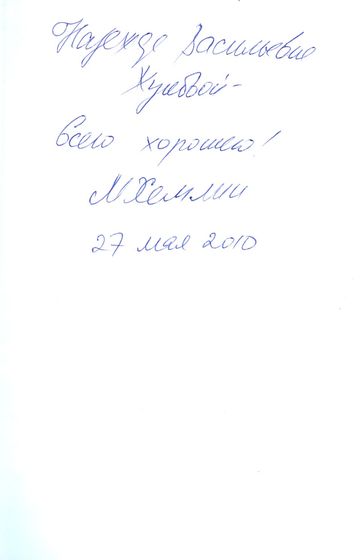 Надежде Васильевне
Хлебовой -
Всего хорошего!
МХемлин
27 мая 2010